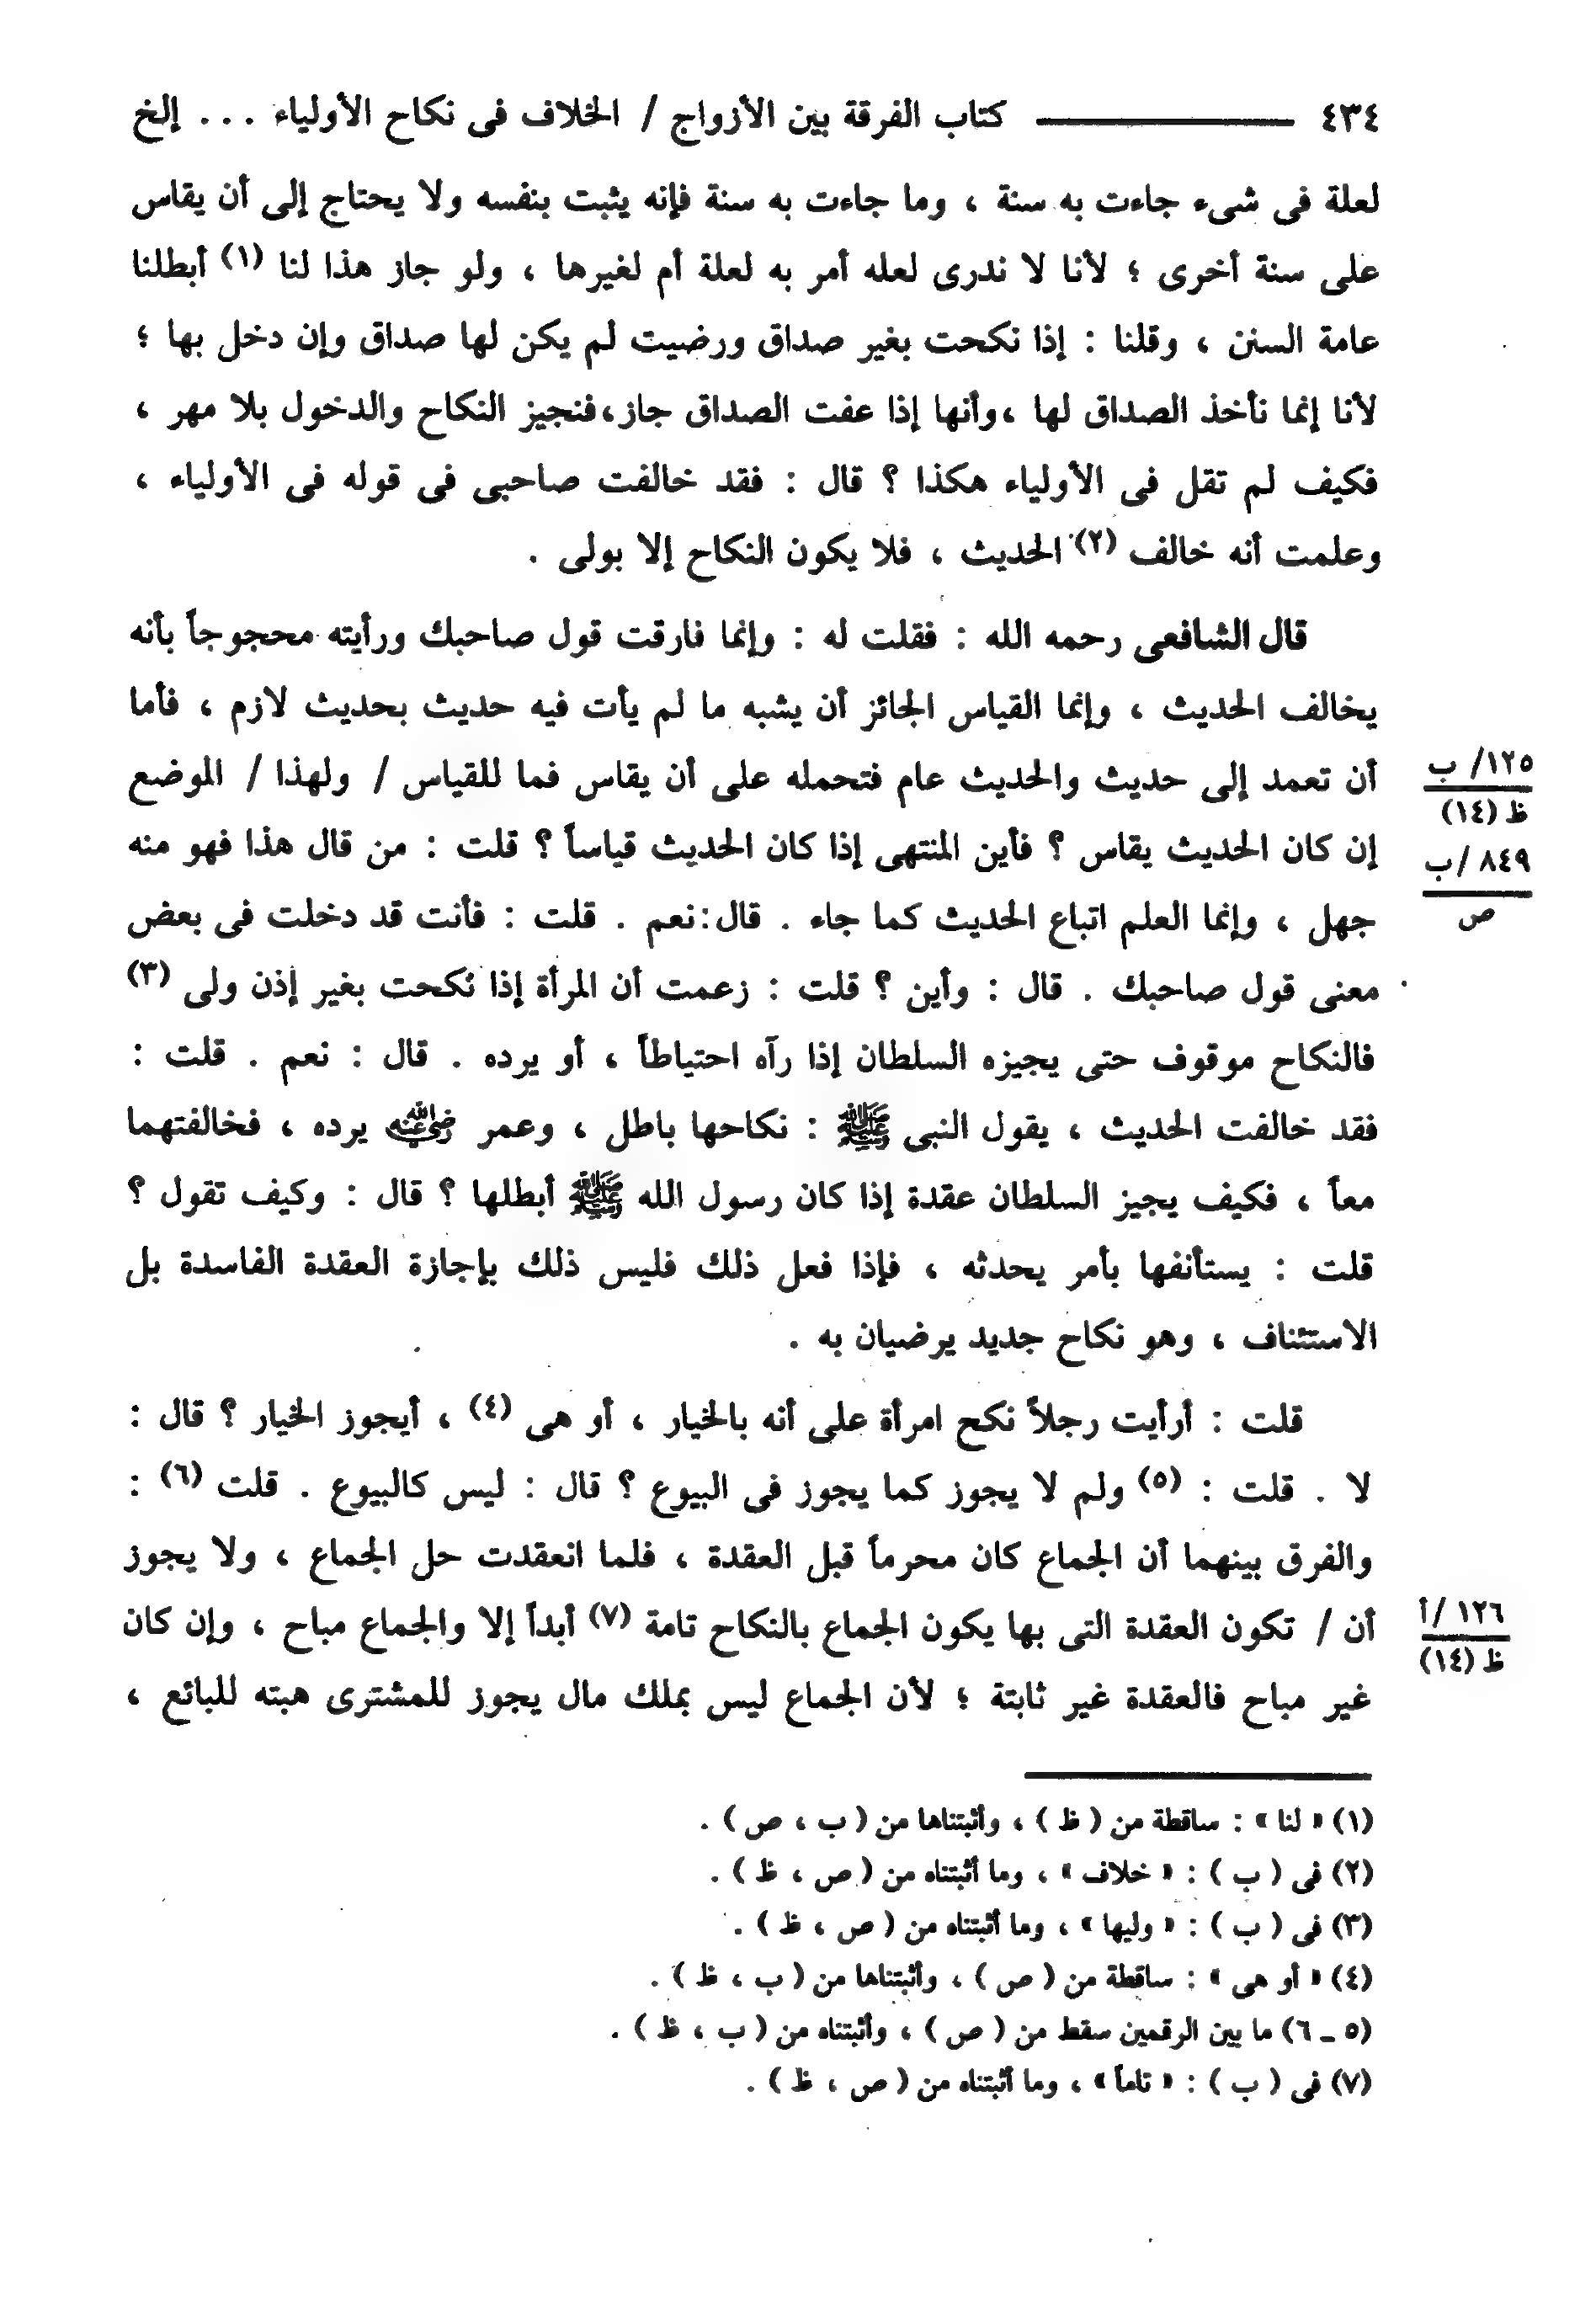 ٤٣٤ ــــــ كتاب الفرقة بين الأزواج / الخلاف فى نكاح الأولياء ... إلخ
لعلة فى شىء جاءت به سنة ، وما جاءت به سنة فإنه يثبت بنفسه ولا يحتاج إلى أن يقاس
على سنة أخرى ؛ لأنا لا ندرى لعله أمر به لعلة أم لغيرها ، ولو جاز هذا لنا (١) أبطلنا
عامة السنن ، وقلنا : إذا نكحت بغير صداق ورضيت لم يكن لها صداق وإن دخل بها ؛
لأنا إنما نأخذ الصداق لها ،وأنها إذا عفت الصداق جاز،فنجيز النكاح والدخول بلا مهر ،
فكيف لم تقل فى الأولياء هكذا ؟ قال : فقد خالفت صاحبى فى قوله فى الأولياء ،
وعلمت أنه خالف (٢) الحديث ، فلا يكون النكاح إلا بولى .
قال الشافعى رحمه الله : فقلت له : وإنما فارقت قول صاحبك ورأيته محجوجاً بأنه
يخالف الحديث ، وإنما القياس الجائز أن يشبه ما لم يأت فيه حديث بحديث لازم ، فأما
أن تعمد إلى حديث والحديث عام فتحمله على أن يقاس فما للقياس / ولهذا / الموضع
١٢٥/ ب
ظ (١٤)
إن كان الحديث يقاس ؟ فأين المنتهى إذا كان الحديث قياساً ؟ قلت : من قال هذا فهو منه
٨٤٩ /ب
ص
جهل ، وإنما العلم اتباع الحديث كما جاء . قال:نعم . قلت : فأنت قد دخلت فى بعض
معنى قول صاحبك . قال : وأين ؟ قلت : زعمت أن المرأة إذا نُكحت بغير إذن ولى (٣)
فالنكاح موقوف حتى يجيزه السلطان إذا رآه احتياطاً ، أو يرده . قال : نعم . قلت :
فقد خالفت الحديث ، يقول النبى ﷺ : نكاحها باطل ، وعمر رضي الله عنه يرده ، فخالفتهما
معاً ، فكيف يجيز السلطان عقدة إذا كان رسول الله ﷺ أبطلها ؟ قال : وكيف تقول ؟
قلت : يستأنفها بأمر يحدثه ، فإذا فعل ذلك فليس ذلك بإجازة العقدة الفاسدة بل
الاستئناف ، وهو نكاح جديد يرضيان به .
قلت : أرأيت رجلاً نكح امرأة على أنه بالخيار ، أو هى (٤) ، أيجوز الخيار ؟ قال :
لا . قلت : (٥) ولم لا يجوز كما يجوز فى البيوع ؟ قال : ليس كالبيوع . قلت (٦) :
والفرق بينهما أن الجماع كان محرماً قبل العقدة ، فلما انعقدت حل الجماع ، ولا يجوز
أن / تكون العقدة التى بها يكون الجماع بالنكاح تامة (٧) أبداً إلا والجماع مباح ، وإن كان
١٢٦ /أ
ظ (١٤)
غير مباح فالعقدة غير ثابتة ؛ لأن الجماع ليس بملك مال يجوز للمشترى هبته للبائع ،
(١) « لنا » : ساقطة من ( ظ ) ، وأثبتناها من ( ب ، ص ) .
(٢) فى ( ب ) : « خلاف » ، وما أثبتناه من ( ص ، ظ ) .
(٣) فى ( ب ) : « وليها » ، وما أثبتناه من ( ص ، ظ ) .
(٤) « أو هى » : ساقطة من ( ص ) ، وأثبتناها من ( ب ، ظ ) .
(٥ ــ ٦) ما بين الرقمين سقط من ( ص ) ، وأثبتناه من ( ب ، ظ ) .
(٧) فى ( ب ) : « تاماً » ، وما أثبتناه من ( ص ، ظ ) .